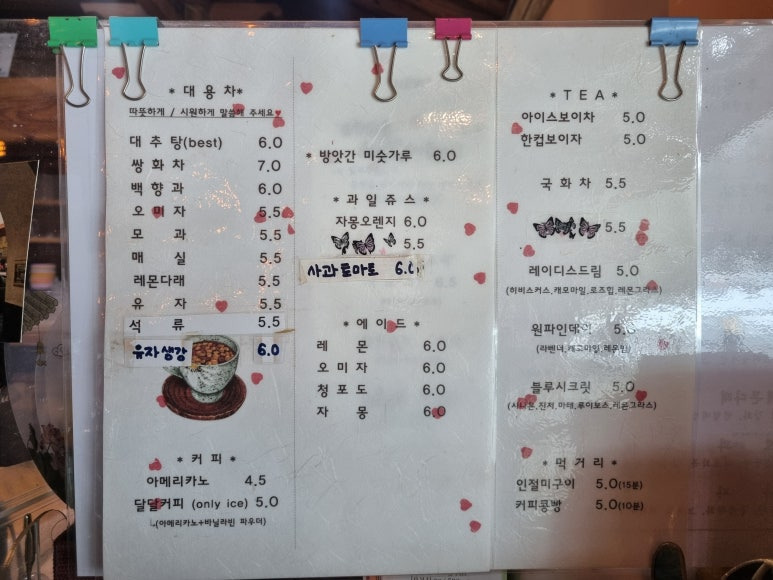 * 대 용 차 *
따뜻하게 / 시원하게 말씀해 주세요
대 추 탕(best) 6.0
쌍 화 차 7.0
백 향 과 6.0
오 미 자 5.5
모 과 5.5
매 실 5.5
레몬다래 5.5
유 자 5.5
석 류 5.5
유자생강 6.0
* 커 피 *
아메리카노 4.5
달달커피 (only ice) 5.0
(아메리카노+바닐라빈 파우더)
* 방앗간 미숫가루 6.0
* 과 일 쥬 스 *
자몽오렌지 6.0
5.5
사과토마토 6.0
* 에 이 드 *
레 몬 6.0
오 미 자 6.0
청 포 도 6.0
자 몽 6.0
* T E A *
아이스보이차 5.0
한컵보이차 5.0
국 화 차 5.5
5.5
레이디스드림 5.0
(히비스커스,캐모마일,로즈힙,레몬그라스)
원파인데이 5.0
(라벤더,캐모마일,레우빈)
블루시크릿 5.0
(시나몬,진저,마테,루이보스,레몬그라스)
* 먹 거 리 *
인절미구이 5.0(15분)
커피콩빵 5.0(10분)